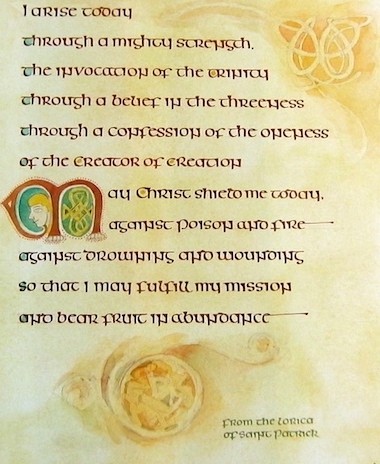 I arise today
through a mighty strength,
the invocation of the trinity
through a belief in the threeness
through a confession of the oneness
of the Creator of Creation
May Christ shield me today,
against poison and fire
against drowning and wounding
so that I may fulfill my mission
and bear fruit in abundance
From the Lorica
of Saint Patrick